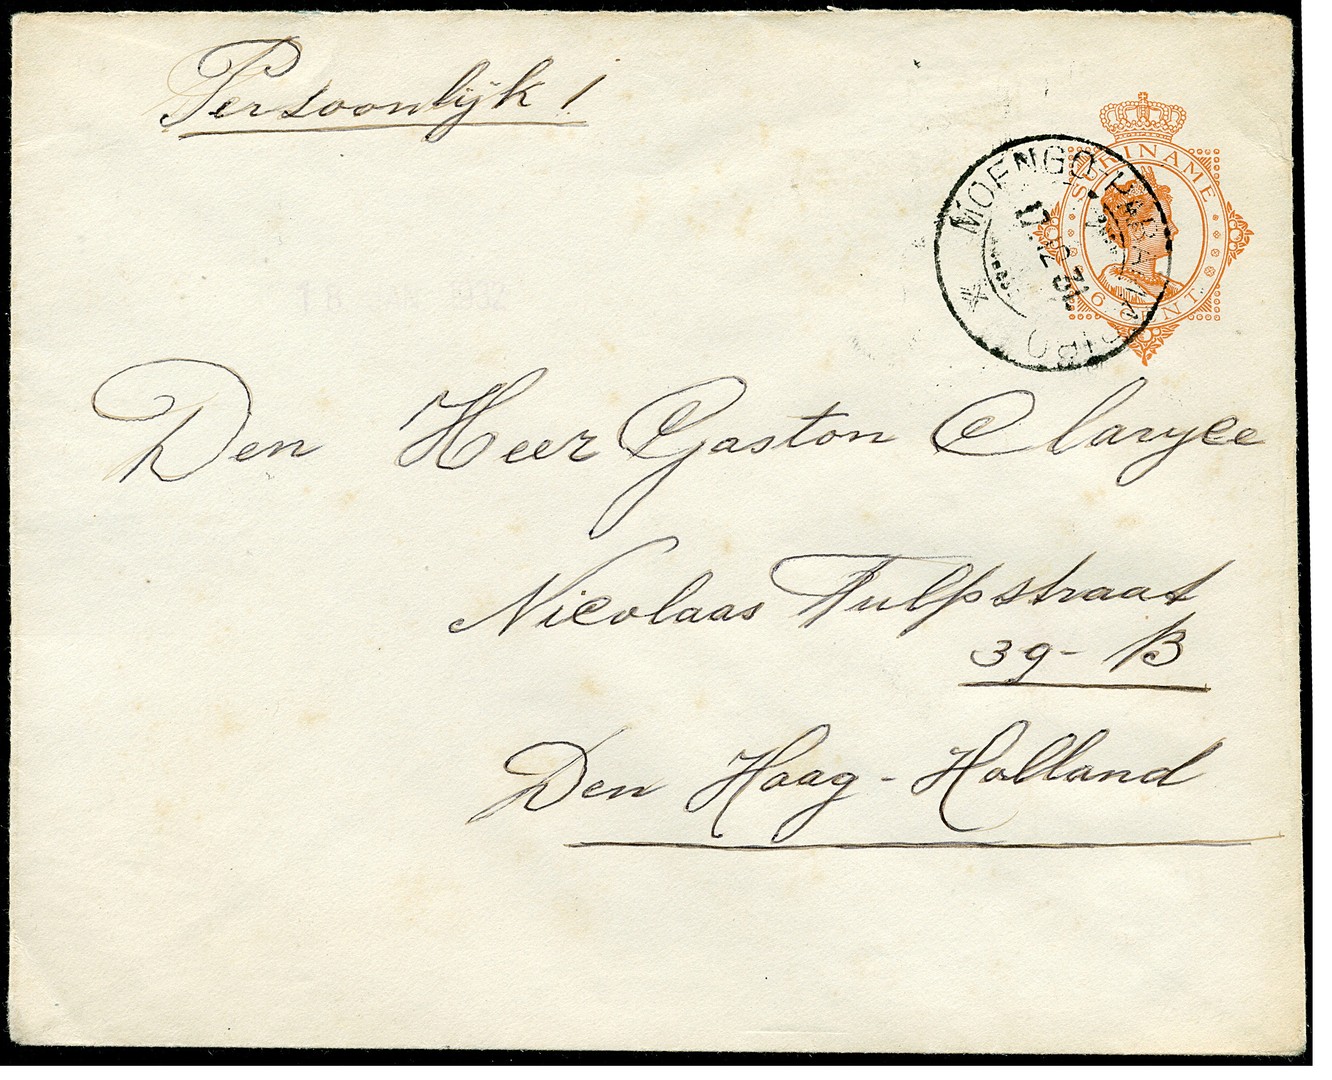 Persoonlijk !
SURINAME
6 CENT
MOENGO-PARAMARIBO
17.12.31
Den Heer Gaston Claryce
Nicolaas Tulpstraat
39- B
Den Haag - Holland